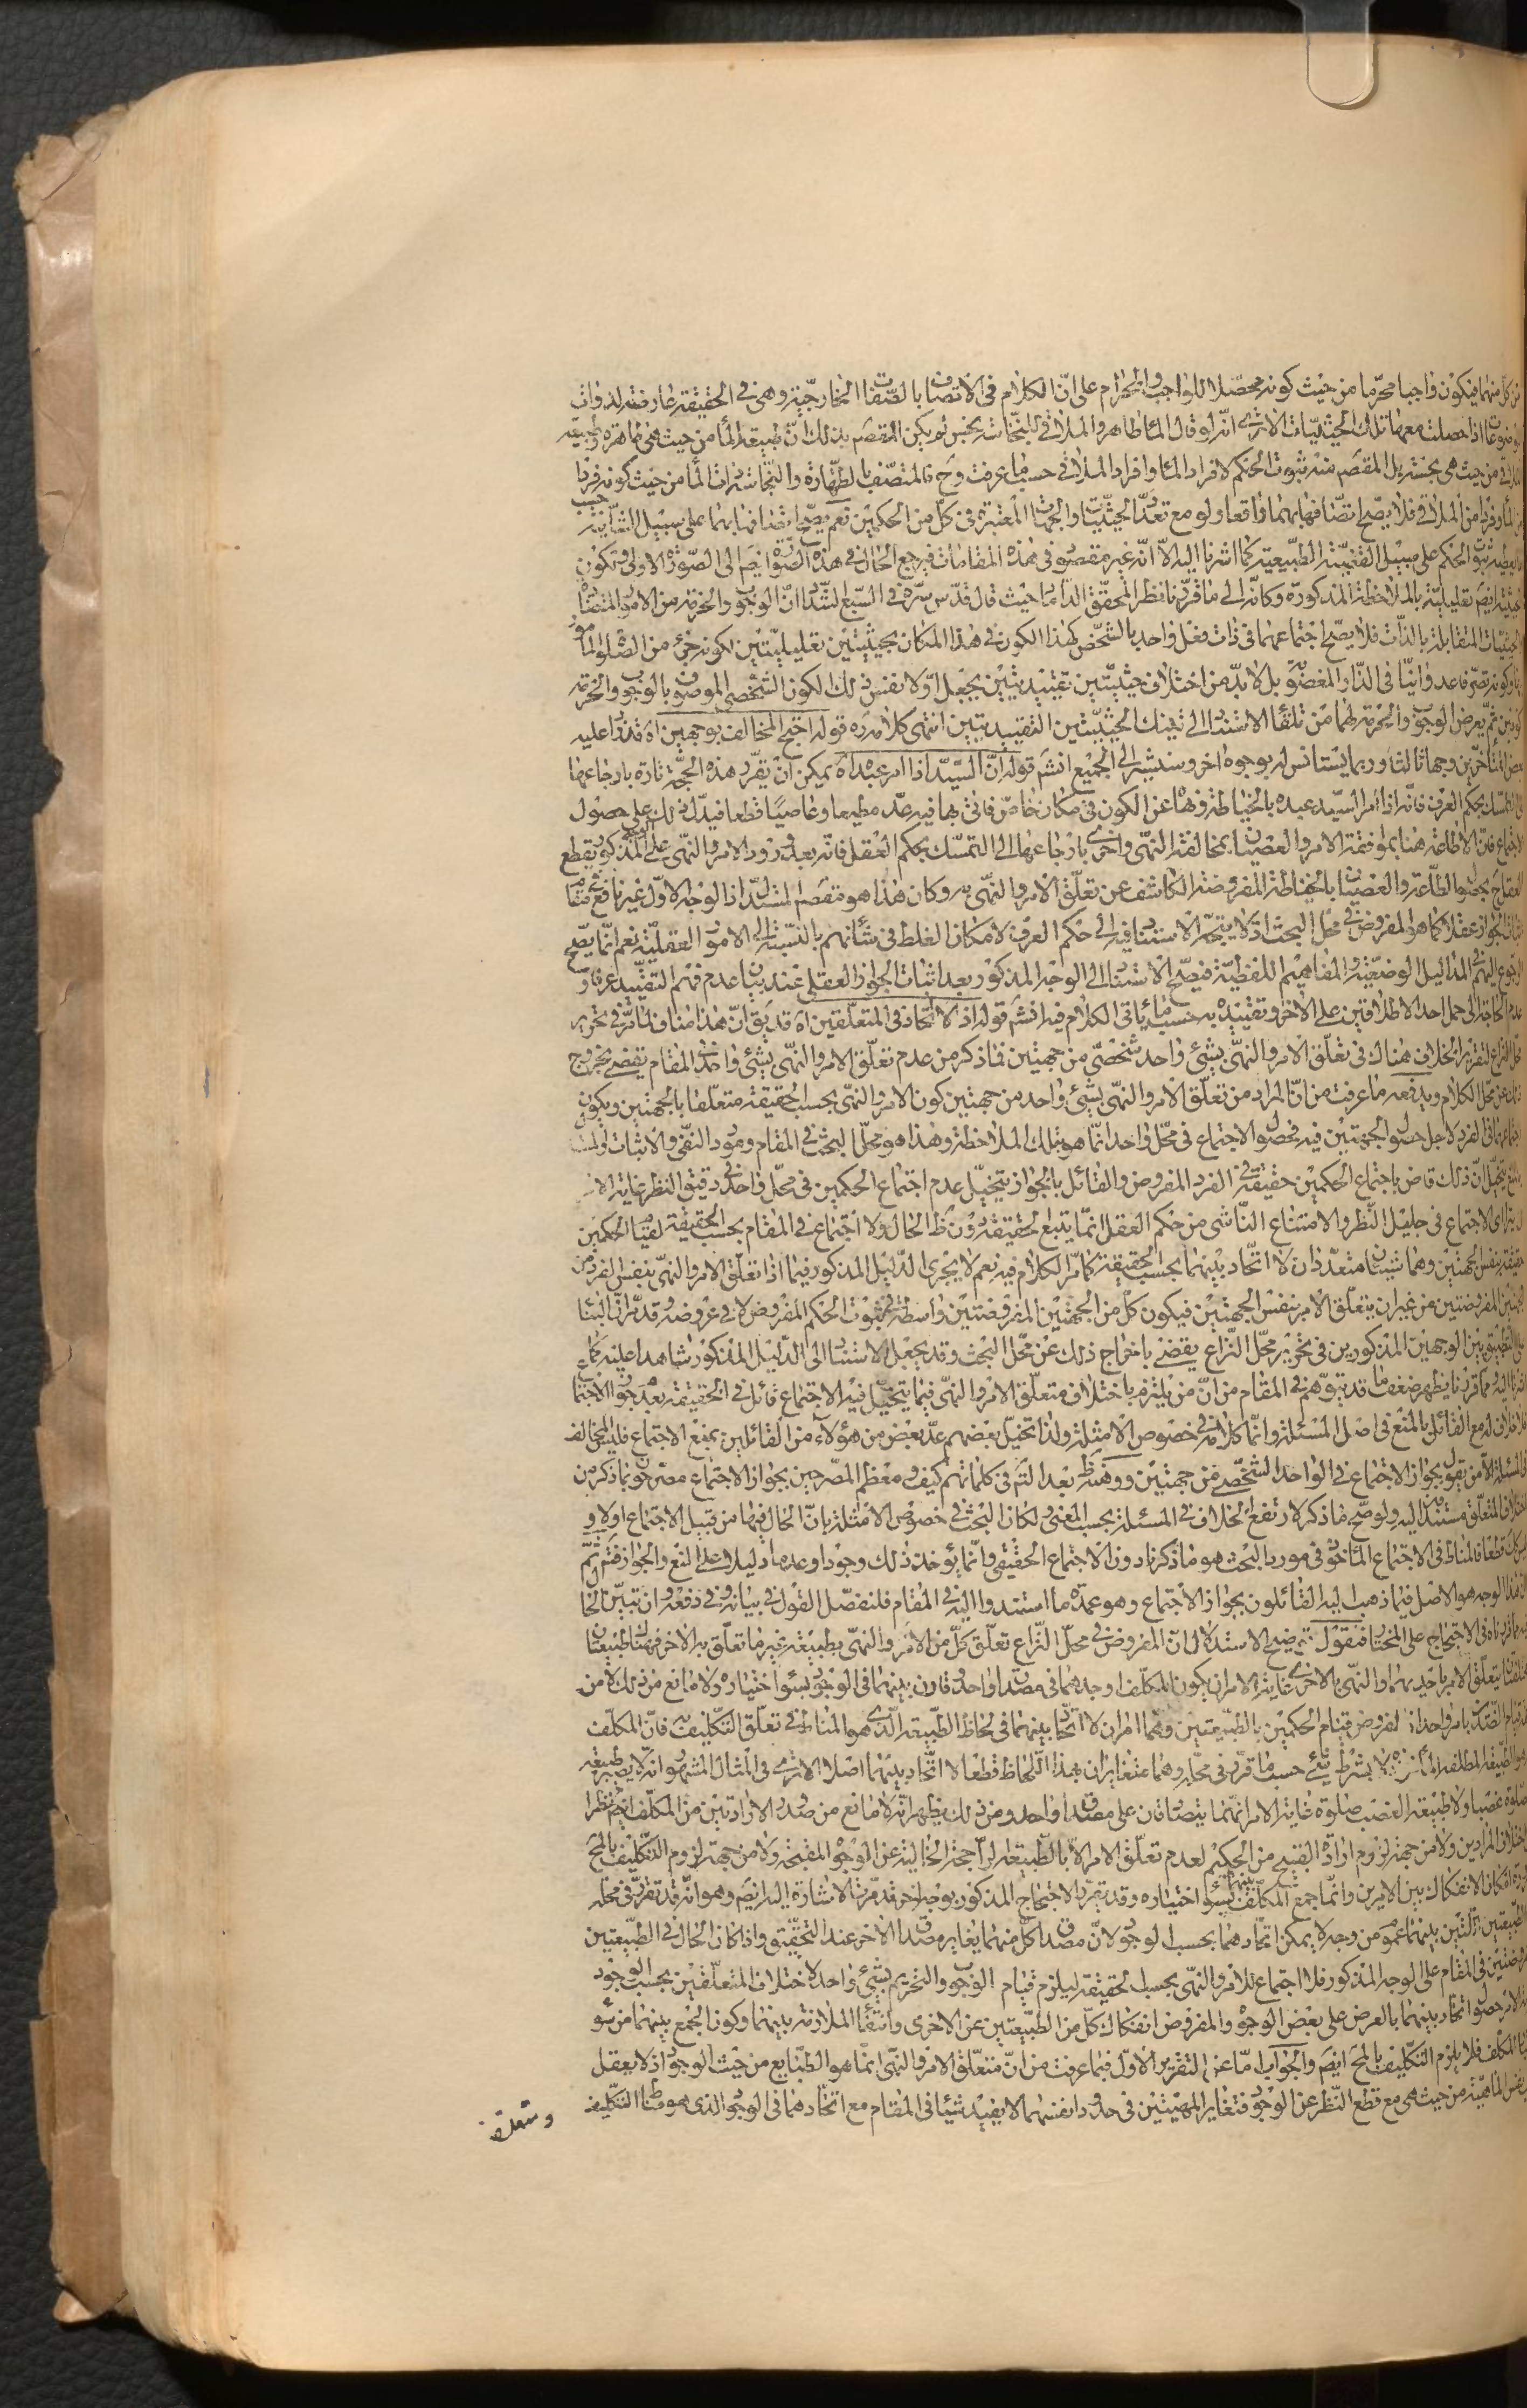 من كل منهما فيكون واجبا محرما من حيث كونه محصلا للواجب والحرام على ان الكلام فى الاتصاف بالصفات الخارجية وهى فى الحقيقة عارضة لذوات
اذا حصلت معها تلك الحيثيات الا ترى انه لو قال الماء طاهر والملاقى للنجاسة نجس لم يكن المقصم بذلك ان طبيعة الماء من حيث هى طاهرة وطبيعة
من حيث هى نجسة بل المقصم منه ثبوت الحكم لافراد الماء وافراد الملاقى حسبما عرفت وح فالمتصف بالطهارة والنجاسة ذات الماء من حيث كونه فردا
من الماء وفردا من الملاقى فلا يصح اتصافها بهما واقعا ولو مع تعدد الحيثيات والجهات المعتبرة فى كل من الحكمين نعم يصح اتصافها بهما على سبيل الشأنية
الحكم على سبيل القضية الطبيعية كما اشرنا اليه الا انه غير مقصود فى هذه المقامات فيرجع الحال فى هذه الصورة ايضم الى الصورة الاولى وتكون
ايضم تعليلية بالملاحظة المذكورة وكانه الى ما قررنا نظر المحقق الداماد حيث قال قدس سره فى السبع الشداد ان الوجوب والحرمة من الامور المتضادة
المتقابلة بالذات فلا يصح اجتماعهما فى ذات فعل واحد بالشخص كهذا الكون فى هذا المكان بحيثيتين تعليليتين لكونه جزء من الصلوة المامور
وكونه تصرفا عدوانيا فى الدار المغصوبة بل لا بد من اختلاف حيثيتين تقييديتين يجعل اولا نفس ذلك الكون الشخصى الموصوف بالوجوب والحرمة
كونين ثم يعرض الوجوب والحرمة لهما من تلقاء الاستناد الى تينك الحيثيتين التقييديتين انتهى كلامه ره قوله احتج المخالف بوجهين اه قد زاد عليه
بعض المتأخرين وجها ثالثا وربما يستانس له بوجوه اخر وسنشير الى الجميع انشم قوله ان السيد اذا امر عبده اه يمكن ان يقرر هذه الحجة تارة بارجاعها
الى التمسك بحكم العرف فانه اذا امر السيد عبده بالخياطة ونهاه عن الكون فى مكان خاص فاتى بها فيه عد مطيعا وعاصيا قطعا فيدل ذلك على حصول
الاجتماع فان الاطاعة هنا بموافقة الامر والعصيان بمخالفة النهى واخرى بارجاعها الى التمسك بحكم العقل فانه بعد ورود الامر والنهى على الوجه المذكور يقطع
العقل ح بحصول الطاعة والعصيان بالخياطة المفروضة الكاشف عن تعلق الامر والنهى به وكان هذا هو مقصم المستدل اذ الوجه الاول غير نافع فى مقام
اثبات الجواز عقلا كما هو المفروض فى محل البحث اذ لا يتجه الاستناد فيه الى حكم العرف لامكان الغلط فى شأنهم بالنسبة الى الامور العقلية نعم انما يصح
الرجوع اليهم فى المداليل الوضعية والمفاهيم اللفظية فيصح الاستناد الى الوجه المذكور بعد اثبات الجواز العقلى عند بيان عدم فهم التقييد عرفا و
عدم الحاجة الى حمل احد الاطلاقين على الاخر وتقييده به حسبما ياتى الكلام فيه انشم قوله اذ لا اتحاد فى المتعلقين اه قد يق ان هذا مناف لما مر فى تحرير
محل النزاع لتقرير الخلاف هناك فى تعلق الامر والنهى بشئ واحد شخصى من جهتين فما ذكر من عدم تعلق الامر والنهى بشئ واحد فى المقام يقضى بخروج
ذلك عن محل الكلام ويدفعه ما عرفت من ان المراد من تعلق الامر والنهى بشئ واحد من جهتين كون الامر والنهى بحسب الحقيقة متعلقا بالجهتين ويكون
اجتماعهما فى الفرد لاجل حصول الجهتين فيه فحصول الاجتماع فى محل واحد انما هو بتلك الملاحظة وهذا هو محل البحث فى المقام ومورد النفى والاثبات
يتخيل ان ذلك قاض باجتماع الحكمين حقيقة فى الفرد المفروض والقائل بالجواز يتخيل عدم اجتماع الحكمين فى محل واحد فى دقيق النظر غاية الامر
ان يترائى الاجتماع فى جليل النظر والامتناع الناشى من حكم العقل انما يتبع الحقيقة دون ظ الحال ولا اجتماع فى المقام بحسب الحقيقة لقيام الحكمين
حقيقة بنفس الجهتين وهما شيئان متعددان لا اتحاد بينهما بحسب الحقيقة كما مر الكلام فيه نعم لا يجرى الدليل المذكور فيما اذا تعلق الامر والنهى بنفس الفرد من
الجهتين المفروضتين من غير ان يتعلق الامر بنفس الجهتين فيكون كل من الجهتين المفروضتين واسطة فى ثبوت الحكم المفروض لا فى عروضه وقد مر ان البناء
على التطبيق بين الوجهين المذكورين فى تحرير محل النزاع يقضى باخراج ذلك عن محل البحث وقد يجعل الاستناد الى الدليل المذكور شاهدا عليه كما
اشرنا اليه ومما قررنا يظهر ضعف ما قد يتوهم فى المقام من ان من يلتزم باختلاف متعلق الامر والنهى فيما يتخيل فيه الاجتماع قائل فى الحقيقة بعدم جواز الاجتماع
فلا خلاف له مع القائل بالمنع فى اصل المسئلة وانما كلامه فى خصوص الامثلة ولذا تخيل بعضهم عد بعض من هؤلاء من القائلين بمنع الاجتماع فليس المخالف
فى المسئلة الا من يقول بجواز الاجتماع فى الواحد الشخصى من جهتين ووهنه ظ بعد التم فى كلماتهم كيف ومعظم المصرحين بجواز الاجتماع مصرحون بما ذكر من
اختلاف المتعلق مستندا اليه ولو صح ما ذكر لارتفع الخلاف فى المسئلة بحسب المعنى ولكان البحث فى خصوص الامثلة بان الحال فيها من قبيل الاجتماع اولا و
ليس كك قطعا فالمناط فى الاجتماع المأخوذ فى مورد البحث هو ما ذكرنا دون الاجتماع الحقيقى وانما يؤخذ ذلك وجودا وعدما دليلا على المنع والجواز فتم ثم
ان هذا الوجه هو الاصل فيما ذهب اليه القائلون بجواز الاجتماع وهو عمدة ما استندوا اليه فى المقام فلنفصل القول فى بيانه وفى دفعه وان تبين الحال
فيه مما قررناه فى الاحتجاج على المختار فنقول توضيح الاستدلال ان المفروض فى محل النزاع تعلق كل من الامر والنهى بطبيعة غير ما تعلق به الاخر فهناك طبيعتان
يتعلق الامر باحديهما والنهى بالاخرى غاية الامر ان يكون المكلف اوجدهما فى مصداق واحد وقارن بينهما فى الوجود بسوء اختياره ولا مانع من ذلك لا من
جهة قيام الضدين بامر واحد اذ المفروض قيام الحكمين بالطبيعتين وهما امران لا اتحاد بينهما فى لحاظ الطبيعة الذى هو المناط فى تعلق التكليف فان المكلف
هو الطبيعة المطلقة المأخوذة لا بشرط شئ حسبما قرر فى محله وهما متغايران بهذا اللحاظ قطعا لا اتحاد بينهما اصلا الا ترى فى المثال المشهور انه لا يصير طبيعة
الصلوة غصبا ولا طبيعة الغصب صلوة غاية الامر انهما يتصادقان على مصداق واحد ومن ذلك يظهر انه لا مانع من صدور الارادتين من المكلف ايضم نظرا
الى اختلاف المرادين ولا من جهة لزوم ارادة القبيح من الحكيم لعدم تعلق الامر الا بالطبيعة الراجحة الخالية عن الوجوه المقبحة ولا من جهة لزوم التكليف بالمح
ضرورة امكان الانفكاك بين الامرين وانما جمع المكلف بينهما بسوء اختياره وقد يقرر الاحتجاج المذكور بوجه اخر قد مرت الاشارة اليه ايضم وهو انه قد تقرر فى محله
ان الطبيعتين اللتين بينهما عموم من وجه لا يمكن اتحادهما بحسب الوجود لان مصداق كل منهما يغاير مصداق الاخر عند التحقيق واذا كان الحال فى الطبيعتين
المفروضتين فى المقام على الوجه المذكور فلا اجتماع للامر والنهى بحسب الحقيقة ليلزم قيام الوجوب والتحريم بشئ واحد لاختلاف المتعلقين بحسب الوجود
غاية الامر حصول اتحاد بينهما بالعرض على بعض الوجوه والمفروض انفكاك كل من الطبيعتين عن الاخرى وانتفاء الملازمة بينهما وكون الجمع بينهما من سوء
اختيار المكلف فلا يلزم التكليف بالمح ايضم والجواب اما عن التقرير الاول فبما عرفت من ان متعلق الامر والنهى انما هو الطبايع من حيث الوجود اذ لا يعقل
نفس الماهية من حيث هى مع قطع النظر عن الوجود فتغاير المهيتين فى حدود انفسهما لا يفيد شيئا فى المقام مع اتحادهما فى الوجود الذى هو مناط التكليف
ومتعلق